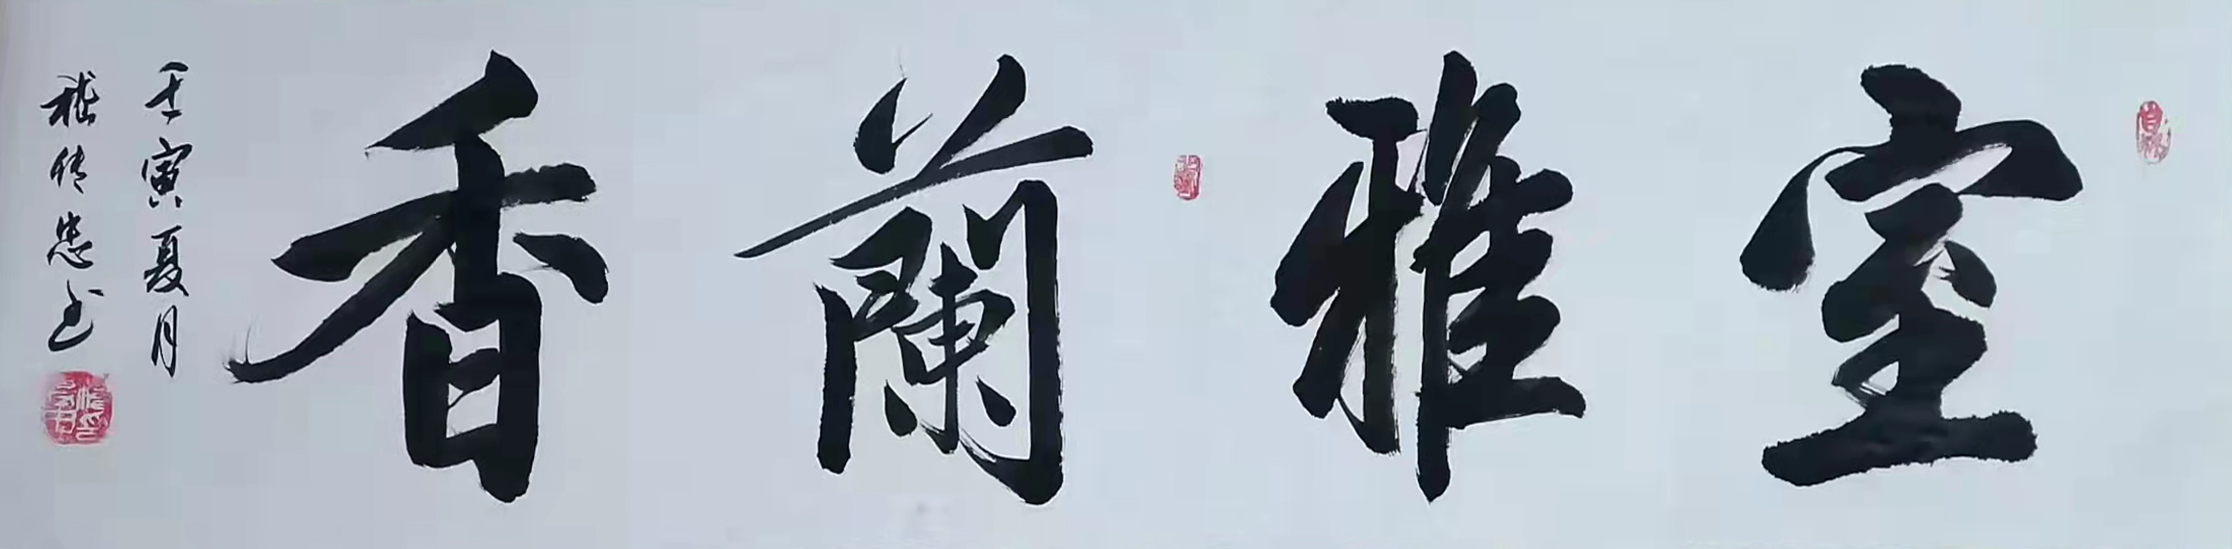 室雅蘭香
壬寅夏月
嵇传忠书